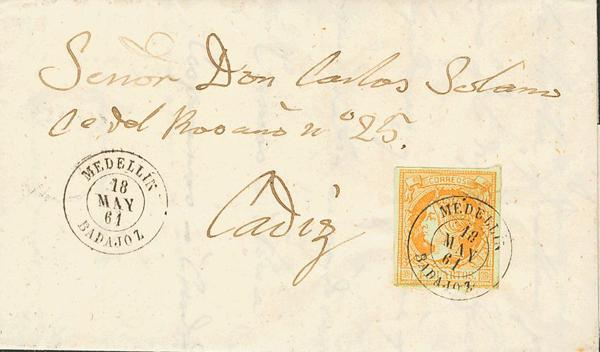 Señor Don Carlos Solano
Ce del Rosario nº 25.
Cadiz
MEDELLIN
18
MAY
61
BADAJOZ
CORREOS
MEDELLIN
18
MAY
61
BADAJOZ